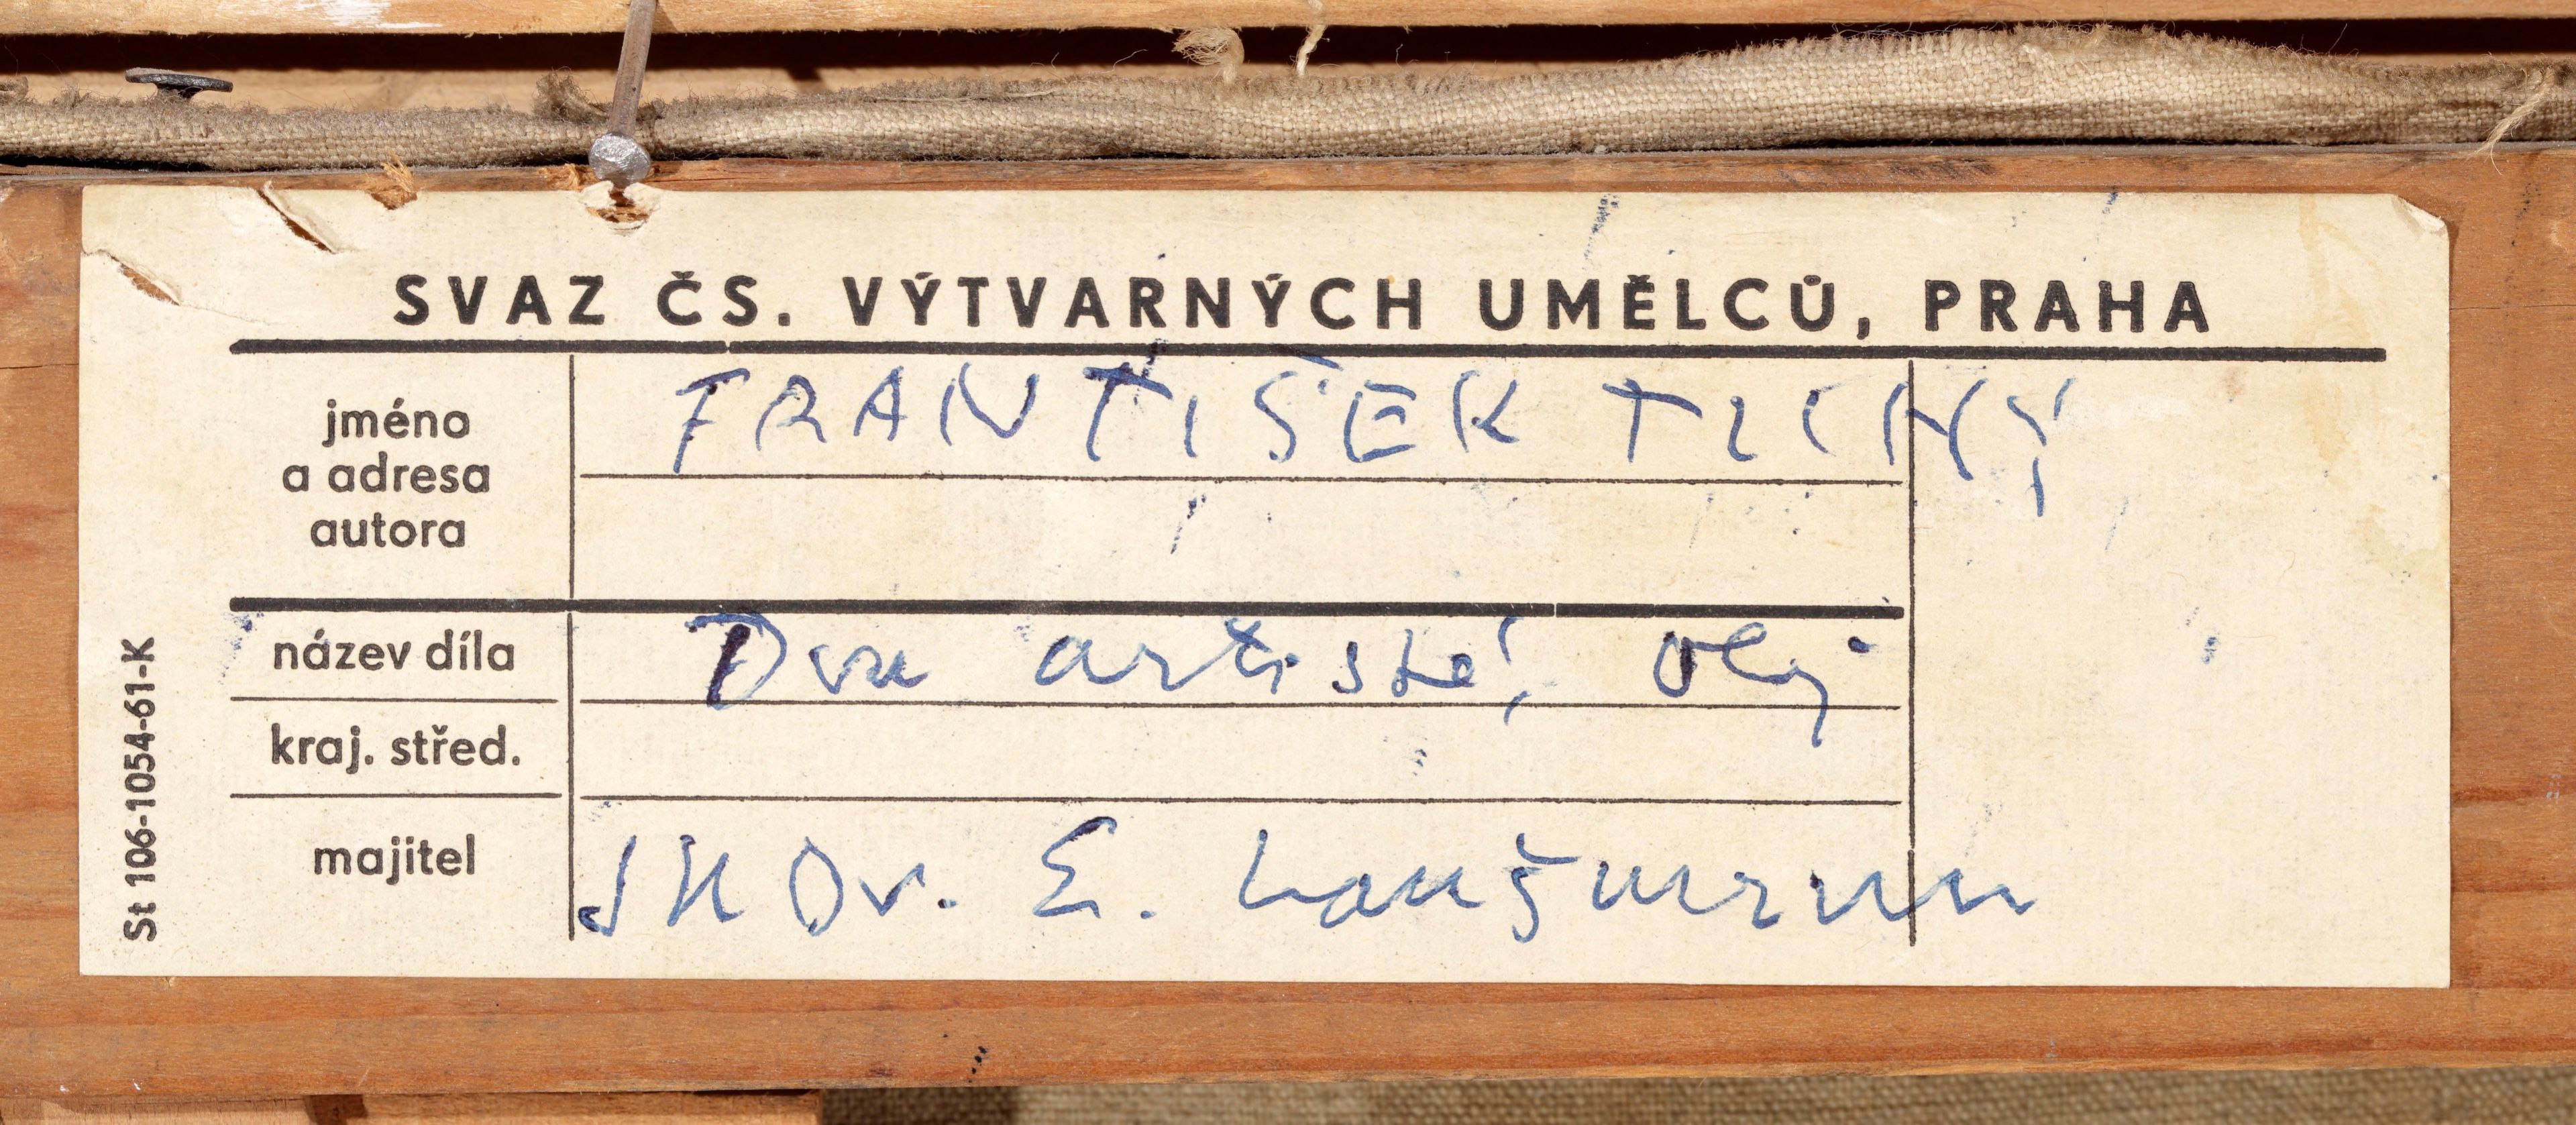 SVAZ ČS. VÝTVARNÝCH UMĚLCŮ, PRAHA
jméno
a adresa
autora
FRANTIŠEK TICHÝ
název díla
Dva artisté, olej
kraj. střed.
majitel
JUDr. E. Laušmann
St 106-1054-61-K